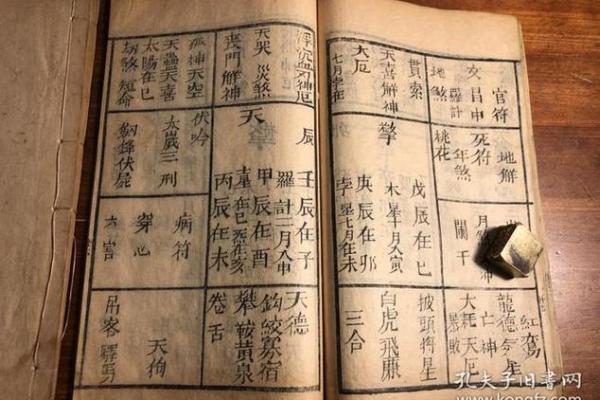 官符
文昌申
羅計
地煞
貫索
天喜解神
大厄
七月孛在
地解
死符
年煞
桃花
擎
戊辰在巳
木星十月入寅
庚辰在卯
孛星七月在未
關干
紅鸞
龍德
亡神
大耗天厄
暴敗
披頭将星
白虎飛廉
三合
浮沉血刃神厄
天哭 災煞
喪門解神
孤神天空
天喜
太陽在巳
劫煞 短命
辰
天
壬辰在子
羅計二月入申
甲辰在酉
丙辰在未
伏吟
太歲三刑
劍鋒伏屍
病符
穿心
六害
天德
鈎絞寡宿
攀鞍黄泉
卷舌
天狗
吊客 驛馬
孔夫子旧書网
www.kongfz.com